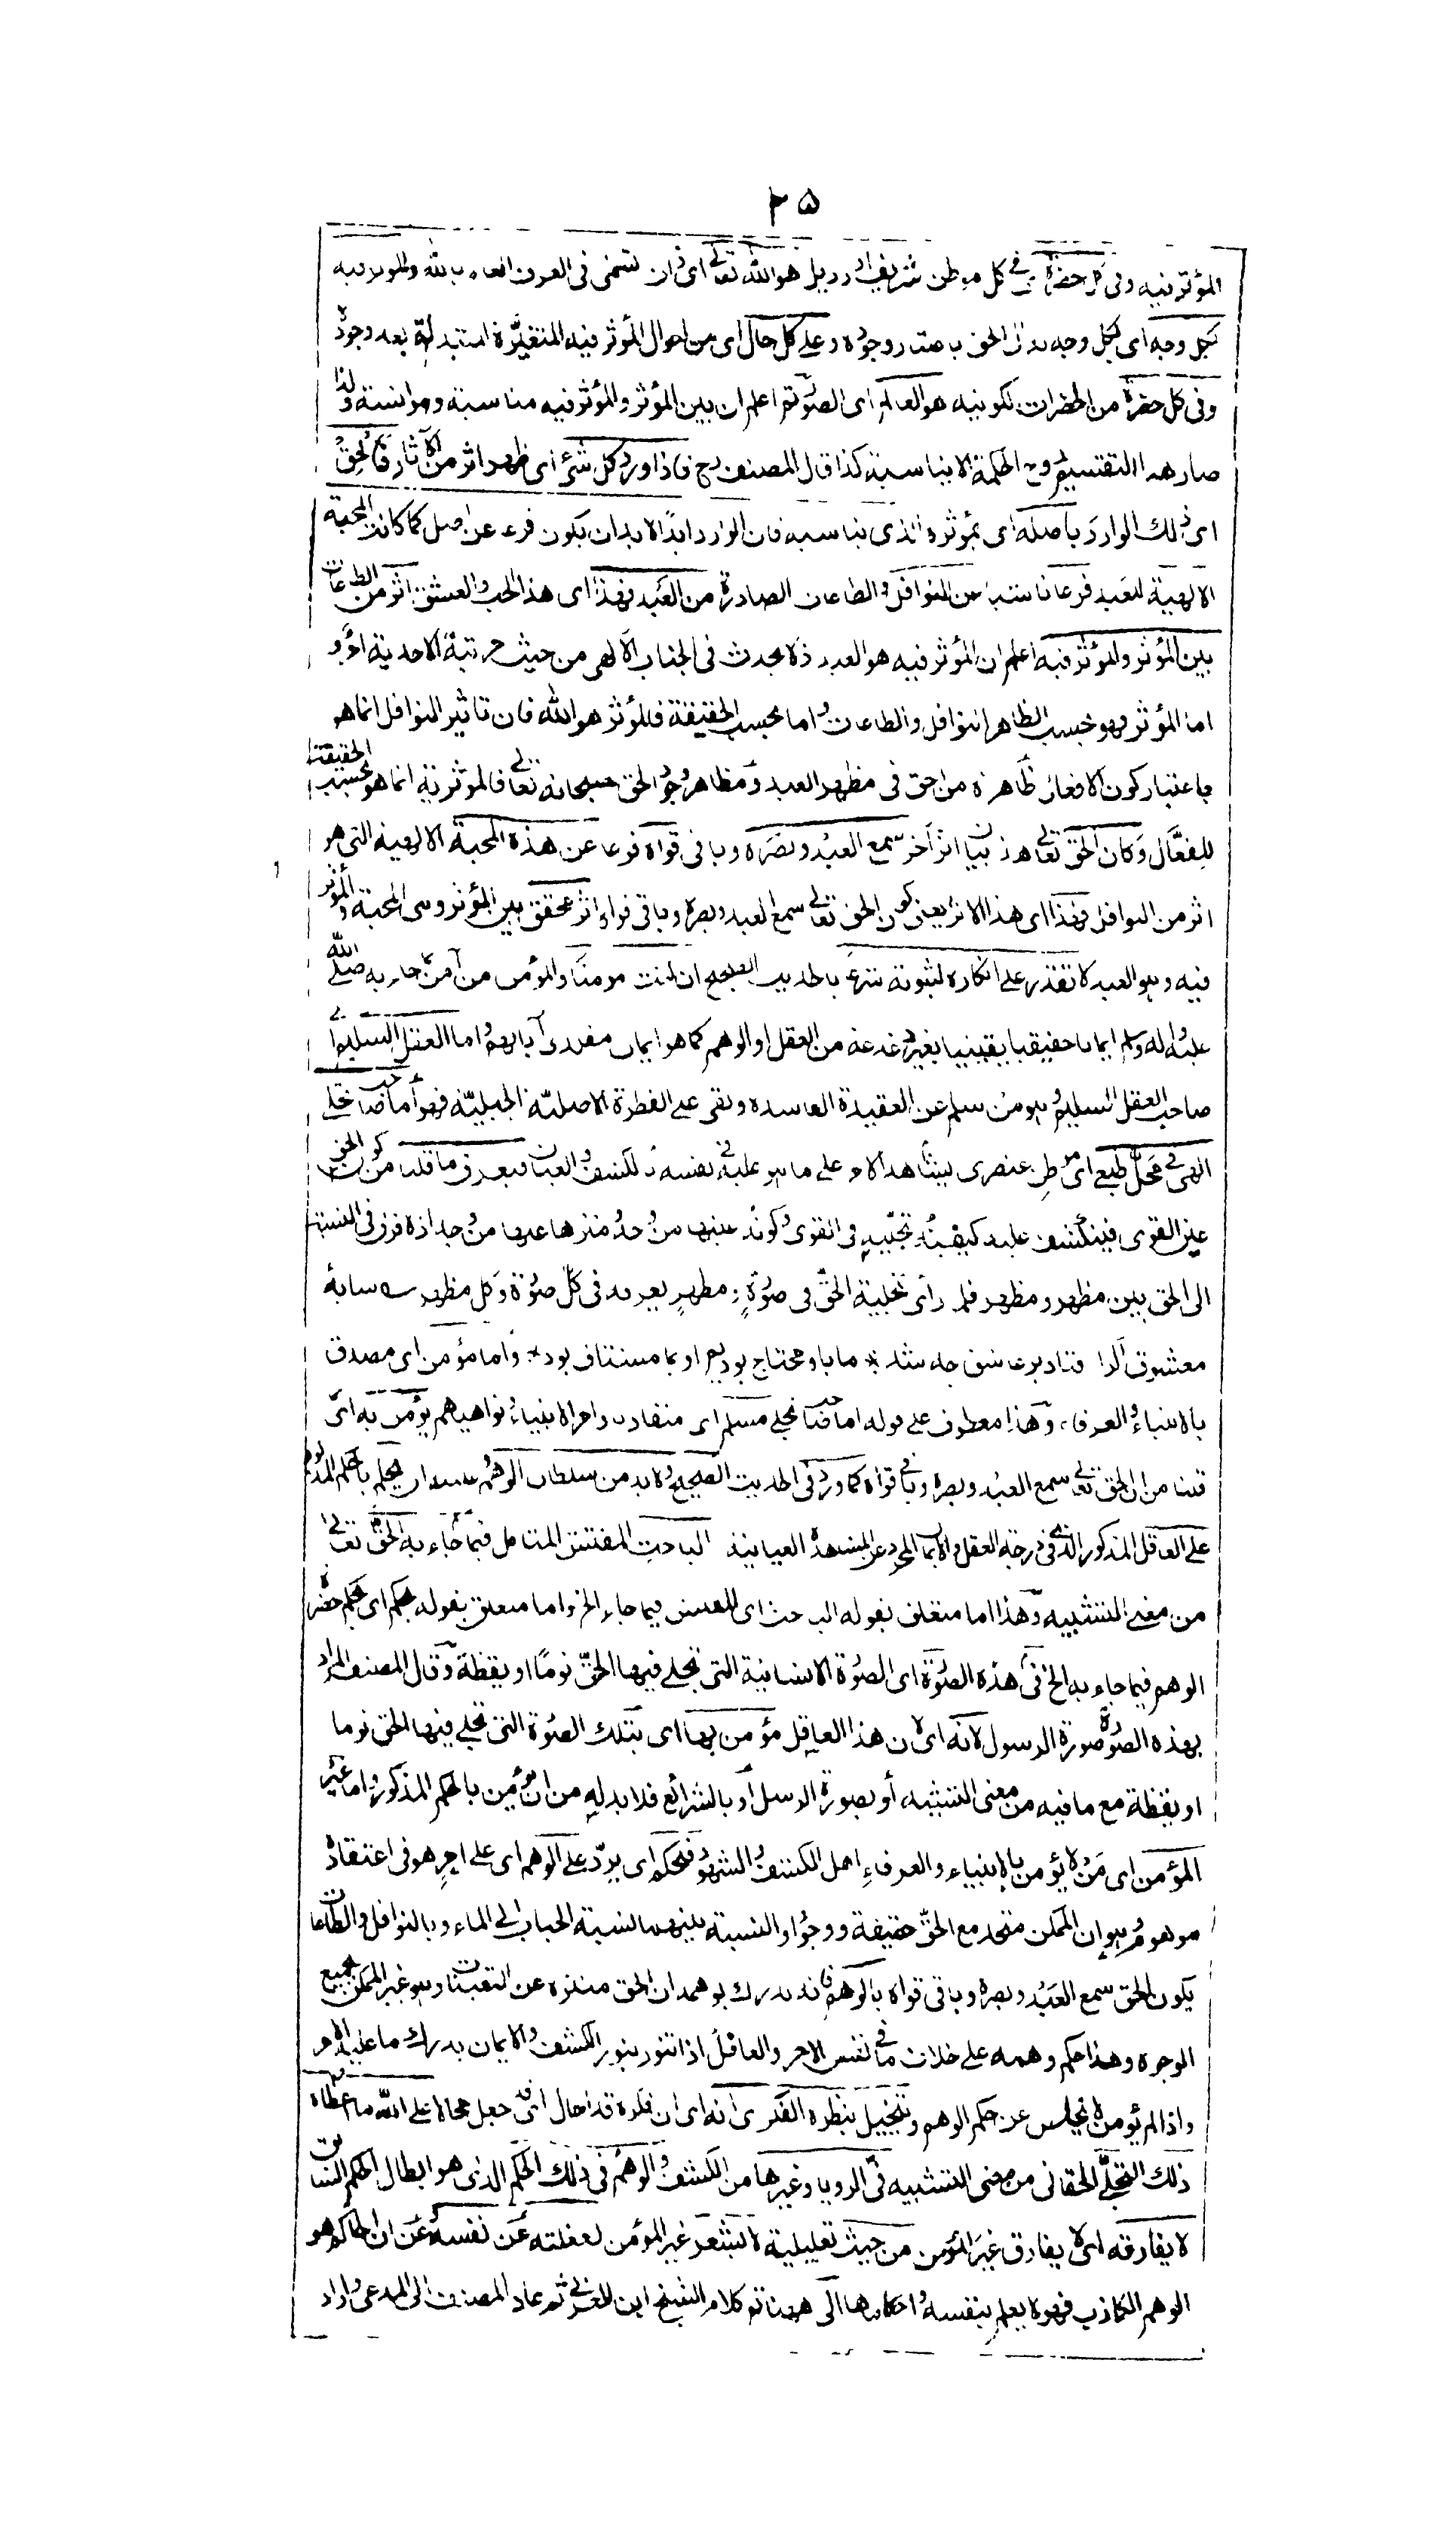 ٢٥
المؤثر فيه وفى كل حضرة فے كل موطن شريف او رذيل هو الله تعالے اى ذات تسمى فى العرف العام بالله والمؤثر فيه
بكل وجه اى لكل وجه الحق باعتبار وجوده وعلے كل حال اى من احوال المؤثر فيه المتغيّرة المتبدلة بعد وجوده
وفى كل حضرة من الحضرات الكونيه هو العالم اى الصورة ثم اعلم ان بين المؤثر والمؤثر فيه مناسبة وموانسة ولذا
صار هذا التقسيم الحكمة الايناسية كذا قال المصنف رح فاذا ورد كل شئ اى ظهر اثر من الآثار فالحق
اى ذلك الوارد باصله اى بمؤثره الذى يناسبه فان الوارد ابدًا لابد ان يكون فرعا عن اصل كما كانت المحبة
الالهية للعبد فرعا ناشئا عن النوافل والطاعات الصادرة من العبد فهذا اى هذا الحب والعشق اثر من الطاعات
بين المؤثر والمؤثر فيه اعلم ان المؤثر فيه هو العبد اذ لا يحدث فى الجناب الالهى من حيث مرتبة الاحدية اثر و
اما المؤثر فهو بحسب الظاهر النوافل والطاعات واما بحسب الحقيقة فالمؤثر هو الله فان تاثير النوافل انما هو
باعتبار كون الافعال ظاهرة من الحق فى مظهر العبد ومظاهر وجود الحق سبحانه تعالے فالمؤثرية انما هو بحسب الحقيقة
للفعّال وكان الحق تعالے هذا بيان اثر آخر سمع العبد وبصره وباقى قواه فرعا عن هذه المحبة الالهية التى هو
اثر من النوافل فهذا اى هذا الاثر يعنى كون الحق تعالے سمع العبد وبصره وباقى قواه اثر محقق بين المؤثر وهى المحبة والمؤثر
فيه وهو العبد لا تقدر على انكاره لثبوته شرعا بالحديث الصحيح ان كنت مومنًا والمؤمن من آمن بما جاء به صلى الله
عليه وآله وسلم ايمانا حقيقيا يقينيا بغير دغدغة من العقل او الوهم كما هو ايمان مقلدى آبائهم واما العقل السليم اے
صاحب العقل السليم وهو من سلم عن العقيدة الفاسده وبقى على الفطرة الاصليّة الجبليّة فهو اما صاحب تجلے
الهى فے محل طبيعے اى موطن عنصرى ليشاهد الامر على ما هو عليه فے نفسه بالكشف والعيان فيعرف ما قلنا من كون الحق
عين القوى فينكشف عليه كيفية تجلّيه فى القوى وكونه عينها من وجه ومنزها عنها من وجه اذ لا فرق فى النسبة
الى الحق بين مظهر ومظهر فلما رأى تجلية الحقّ فى صورةٍ ومظهرٍ يعرفه فى كلّ صورة وكل مظهر ے سايهٔ
معشوق اگر افتاد بر عاشق چه شد * ما باو محتاج بوديم او بما مشتاق بود * واما مؤمن اى مصدق
بالانبياء والعرفاء وهذا معطوف على قوله اما صاحب تجلے مسلم اى منقاد لاوامر الانبياء ونواهيهم يؤمن به اى
قلنا من ان الحق تعالے سمع العبد وبصره وباقى قواه كما ورد فى الحديث الصحيح ولابد من سلطان الوهم ان يحكم بالحكم المذكور
على العاقل المذكور الذى فى درجة العقل والايمان المجرد عن المشاهدة العيانية الباحث المفتش المتامل فيما جاء به الحقّ تعالے
من معنے التشبيه وهذا اما متعلق بقوله الباحث اى المفتش فيما جاء الخ واما متعلق بقوله يحكم اى يحكم حضرة
الوهم فيما جاء به الخ فى هذه الصورة اى الصورة الانسانية التى تجلے فيها الحقّ نومًا او يقظة وقال المصنف المراد
بهذه الصورة صورة الرسول لانه اى لان هذا العاقل مؤمن بها اى بتلك الصورة التى تجلے فيها الحق نوما
او يقظة مع ما فيه من معنى التشبيه أو بصورة الرسل أو بالشرائع فلا بد له من ان يؤمن بالحكم المذكور واما غير
المؤمن اى مَن لا يؤمن بالانبياء والعرفاءِ اهل الكشف والشهود فيحكم اى يردّ على الوهم اى على امرٍ هو فى اعتقاده
موهوم وهو ان الممكن متحد مع الحقّ حقيقة ووجودا والنسبة بينهما نسبة الحباب الى الماء وبالنوافل والطاعات
يكون الحق سمع العبد وبصره وباقى قواه بالوهم فانه يدرك بوهمه ان الحق منزه عن التعينات وهو غير الممكن بجميع
الوجوه وهذا حكم وهمه على خلاف ما فے نفس الامر والعاقل اذا تنور بنور الكشف والايمان يدرك ما عليه الامر
واذا لم يؤمن لا يخلص عن حكم الوهم وتخييل بنظره الفكرى انه اى ان فكره قد احال اى قد جعل محالا على الله ما اعطاه
ذلك التجلّے الحقانى من معنى التشبيه فى الرويا وغيرها من الكشف والوهم فى ذلك الحكم الذى هو ابطال الحكم السابق
لا يفارقه اى لا يفارق غير المؤمن من حيث تعليلية لا يشعر غير المؤمن لغفلته عن نفسه عن ان الحاكم هو
الوهم الكاذب فهو لا يعلم بنفسه واحكامها الى ههنا تم كلام الشيخ ابن العربى ثم عاد المصنف الى المدعى واراد